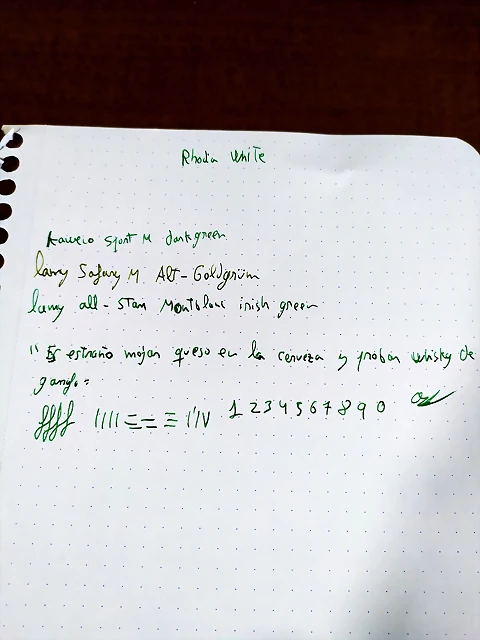 Rhodia White
Kaweco Sport M dark green
lamy Safary M Alt-Goldgrün
lamy all-Star Montblanc irish green
"Es estraño mojar queso en la cerveza y probar whisky de
1 2 3 4 5 6 7 8 9 0